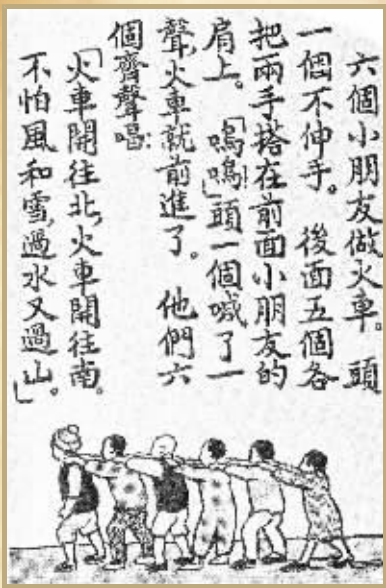 六個小朋友做火車。頭
一個不伸手。後面五個各
把兩手搭在前面小朋友的
肩上。「嗚嗚!」頭一個喊了一
聲,火車就前進了。他們六
個齊聲唱:
「火車開往北,火車開往南。
不怕風和雪,過水又過山。」